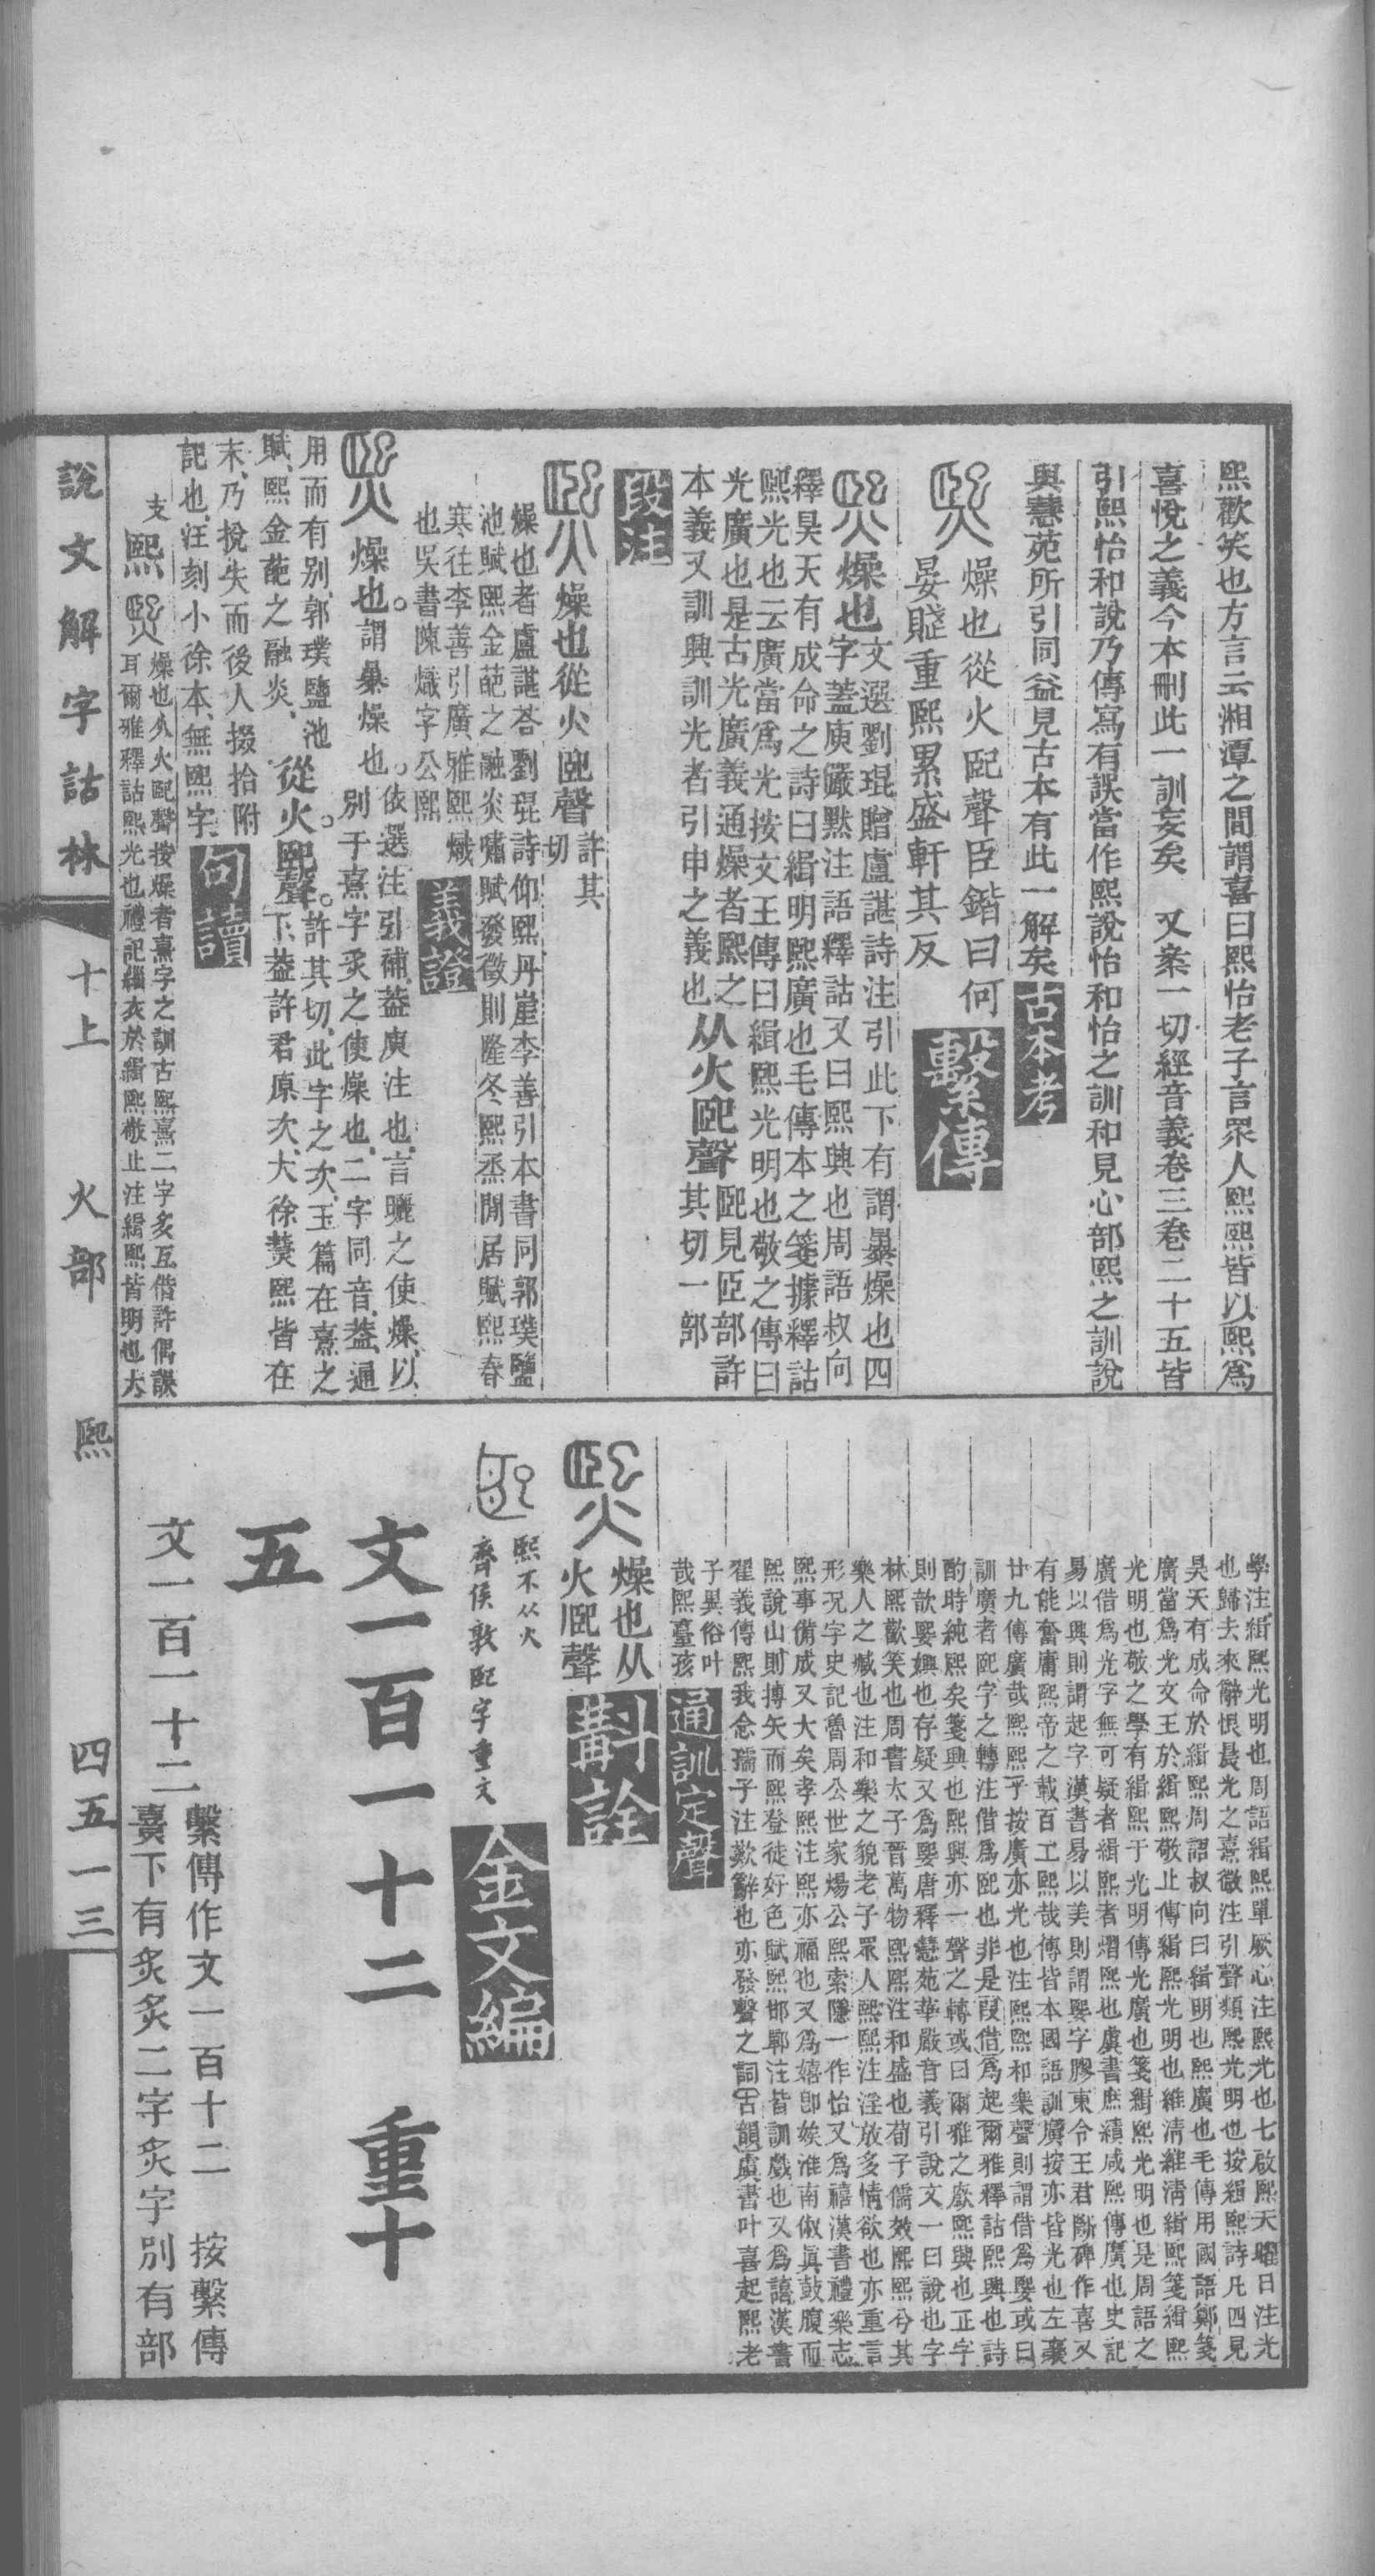 熙歡笑也方言云湘潭之間謂喜曰熙怡老子言眾人熙熙皆以熙爲
喜悅之義今本刪此一訓妄矣　又案一切經音義卷三卷二十五皆
引熙怡和說乃傳寫有誤當作熙說怡和怡之訓和見心部熙之訓說
與慧苑所引同益見古本有此一解矣
古本考
燥也從火巸聲臣鍇曰何
晏賦重熙累盛軒其反
繫傳
燥也
文選劉琨贈盧諶詩注引此下有謂暴燥也四
字蓋庾儼默注語釋詁又曰熙興也周語叔向
釋昊天有成命之詩曰緝明熙廣也毛傳本之箋據釋詁
熙光也云廣當爲光按文王傳曰緝熙光明也敬之傳曰
光廣也是古光廣義通燥者熙之
本義又訓興訓光者引申之義也
从火巸聲
巸見𦣞部許
其切一部
段注
燥也從火巸聲
許其
切
燥也者盧諶荅劉琨詩仰熙丹崖李善引本書同郭璞鹽
池賦熙金葩之融炎嘯賦發徵則隆冬熙烝閒居賦熙春
寒往李善引廣雅熙熾
也吳書陳熾字公熙
義證
燥也
謂暴燥也
依選注引補蓋庾注也言曬之使燥以
別于熹字炙之使燥也二字同音蓋通
用而有别郭璞鹽池
賦熙金葩之融炎
從火巸聲
許其切此字之次玉篇在熹之
下蓋許君原次大徐爕熙皆在
末乃挩失而後人掇拾附
記也汪刻小徐本無熙字
句讀
支
熙
燥也从火巸聲按燥者熹字之訓古熙熹二字多互借許偶誤
耳爾雅釋詁熙光也禮記緇衣於緝熙敬止注緝熙皆明也大
說文解字詁林
十上
火部
熙
四五一三
學注緝熙光明也周語緝熙單厥心注熙光也七啟熙天曜日注光
也歸去來辭恨晨光之熹微注引聲類熙光明也按緝熙詩凡四見
昊天有成命於緝熙周語叔向曰緝明也熙廣也毛傳用國語鄭箋
廣當爲光文王於緝熙敬止傳緝熙光明也維清維清緝熙箋緝熙
光明也敬之學有緝熙于光明傳光廣也箋緝熙光明也是周語之
廣借爲光字無可疑者緝熙者熠熙也虞書庶績咸熙傳廣也史記
易以興則謂起字漢書易以美則謂媐字膠東令王君斷碑作喜又
有能奮庸熙帝之載百工熙哉傳皆本國語訓廣按亦皆光也左襄
廿九傳廣哉熙熙乎按廣亦光也注熙熙和樂聲則謂借爲媐或曰
訓廣者巸字之轉注借爲巸也非是叚借爲起爾雅釋詁熙興也詩
酌時純熙矣箋興也熙興亦一聲之轉或曰爾雅之廞熙興也正字
則歆媐嬹也存疑又爲媐唐釋慧苑華嚴音義引說文一曰說也字
林熙歡笑也周書太子晉萬物熙熙注和盛也荀子儒效熙熙兮其
樂人之臧也注和樂之貌老子眾人熙熙注淫放多情欲也亦重言
形況字史記魯周公世家煬公熙索隱一作怡又爲禧漢書禮樂志
熙事備成又大矣孝熙注熙亦福也又爲嬉卽娭淮南俶真鼓腹而
熙說山則搏矢而熙登徒好色賦熙邯鄲注皆訓戲也又爲譆漢書
翟義傳熙我念孺子注歎辭也亦發聲之詞[古韻]虞書叶喜起熙老
子異俗叶
哉熙臺孩
通訓定聲
燥也从
火巸聲
斠詮
熙不从火
齊侯敦巸字重文
金文編
文一百一十二　重十
五
文一百一十二
繫傳作文一百十二　按繫傳
爂下有炙炙二字炙字別有部